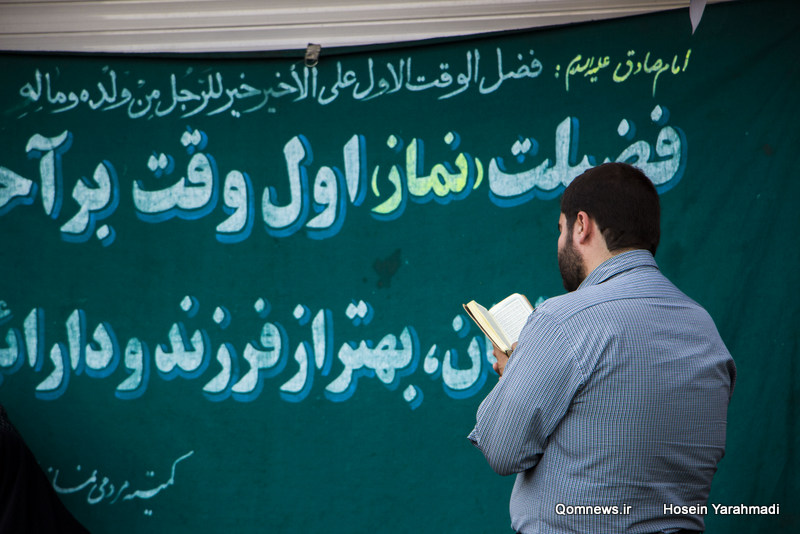 امام صادق علیه السلام : فضل الوقت الاول علی الأخیر خیر للرّجل مِنْ ولده و مالِهِ
فضیلت (نماز) اول وقت بر آخ
ان، بهتر از فرزند و دارائ
کمیته مردمی نماز
Qomnews.ir Hosein Yarahmadi